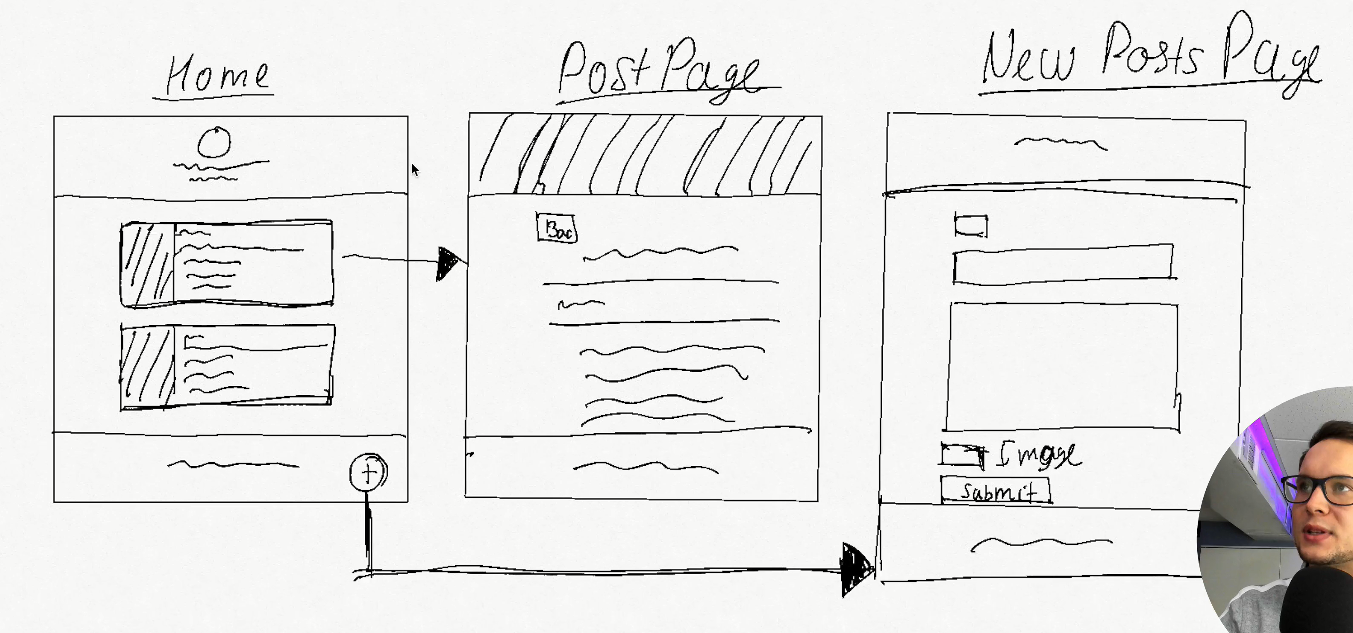 Home
Post Page
New Posts Page
Bac
+
Image
Submit